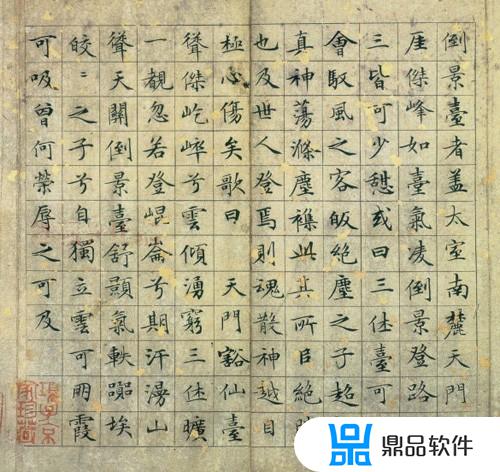 倒景臺者蓋太室南麓天門
厓傑峰如臺氣凌倒景登路
三皆可少憇或曰三休臺可
會馭風之客皈絶塵之子超
真神蕩滌塵襟此其所㠯絶
也及世人登焉則魂散神越目
極心傷矣歌曰 天門豁仙臺
聳傑屹崪兮雲傾湧窮三休曠
一覩忽若登崐崙兮期汗漫山
聳天關倒景臺舒顥氣軼躢埃
皎〻之子兮自獨立雲可朋霞
可吸曾何榮辱之可及
項子京
家珍藏
鼎品软件